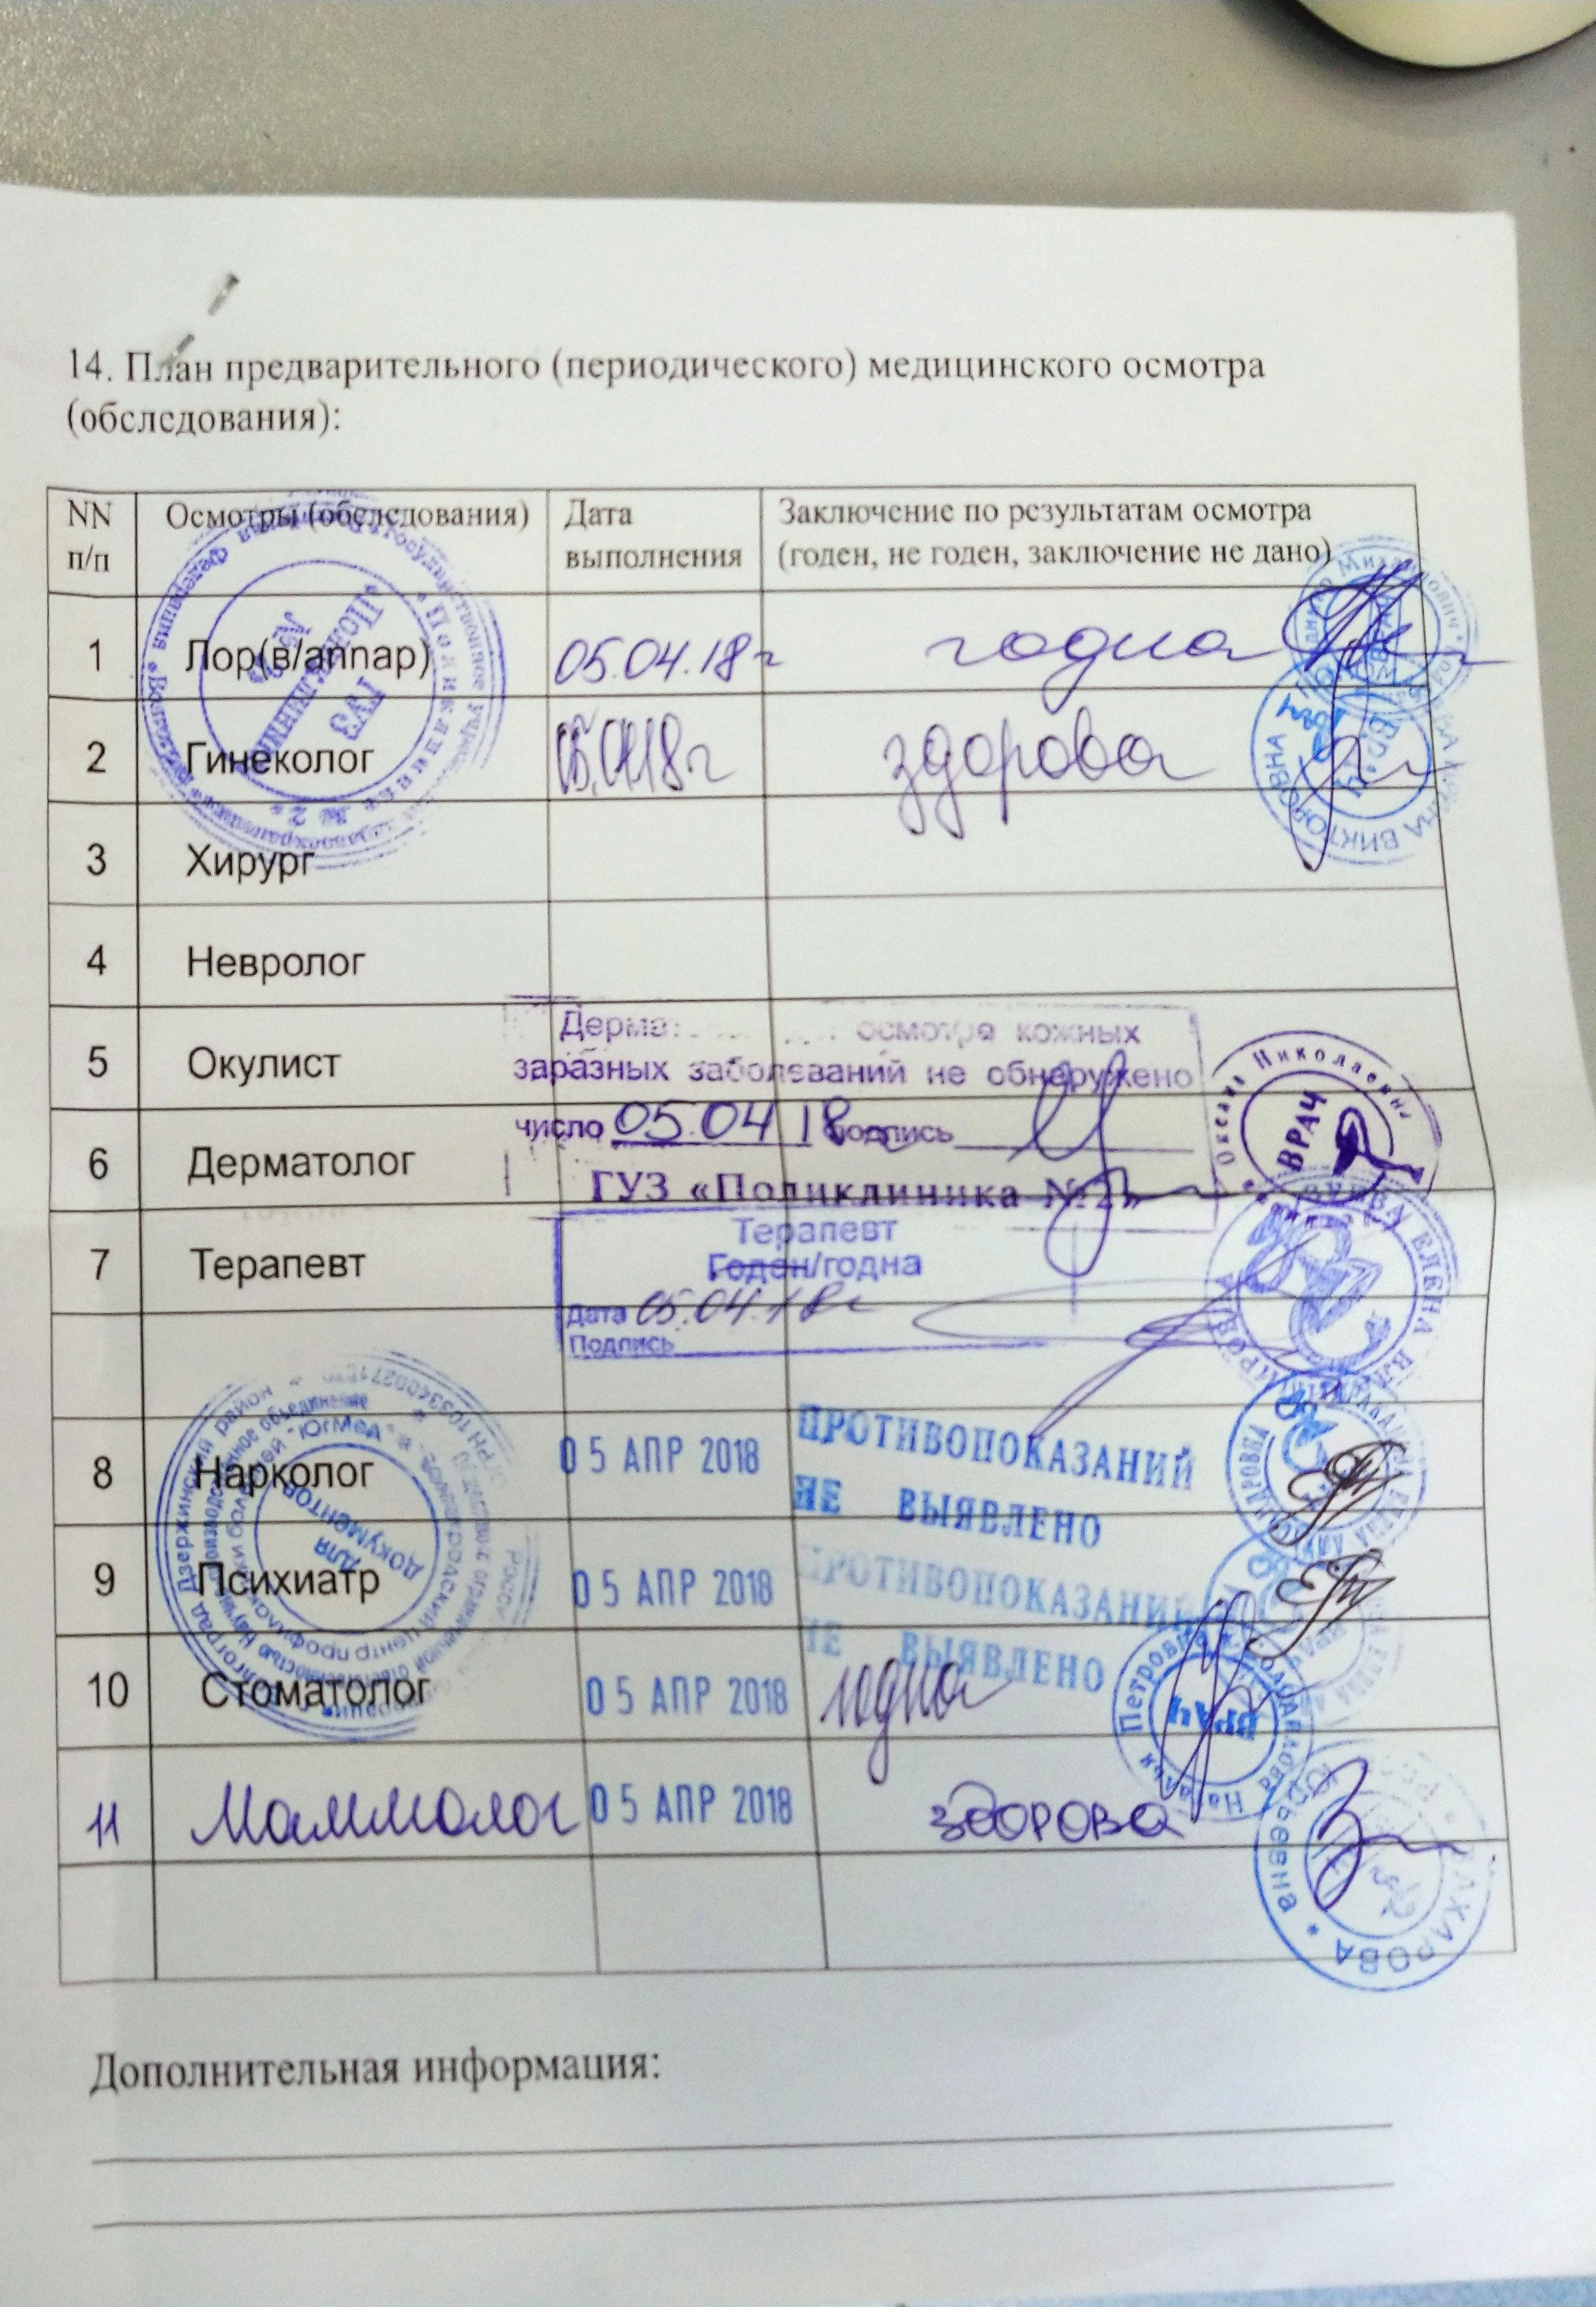 14. План предварительного (периодического) медицинского осмотра
(обследования):
NN
п/п
Осмотры (обследования)
Дата
выполнения
Заключение по результатам осмотра
(годен, не годен, заключение не дано)
1 Лор(в/аппар) 05.04.18г годна
2 Гинеколог 05.04.18г здорова
3 Хирург
4 Невролог
Дерма осмотре кожных
5 Окулист заразных заболеваний не обнаружено
число 05.04 18г подпись
6 Дерматолог
ГУЗ «Поликлиника №2»
Терапевт
7 Терапевт Годен/годна
Дата 05.04.18г
Подпись
8 Нарколог 05 АПР 2018 ПРОТИВОПОКАЗАНИЙ
НЕ ВЫЯВЛЕНО
9 Психиатр 05 АПР 2018 ПРОТИВОПОКАЗАНИЙ
НЕ ВЫЯВЛЕНО
10 Стоматолог 05 АПР 2018 годна
11 Маммолог 05 АПР 2018 здорова
Дополнительная информация:
ГУЗ
Поликлиника
№ 2
Для
документов
Оксана Николаевна
ВРАЧ
ЕЛЕНА
ВИКТОРОВНА
Петровна
ВРАЧ